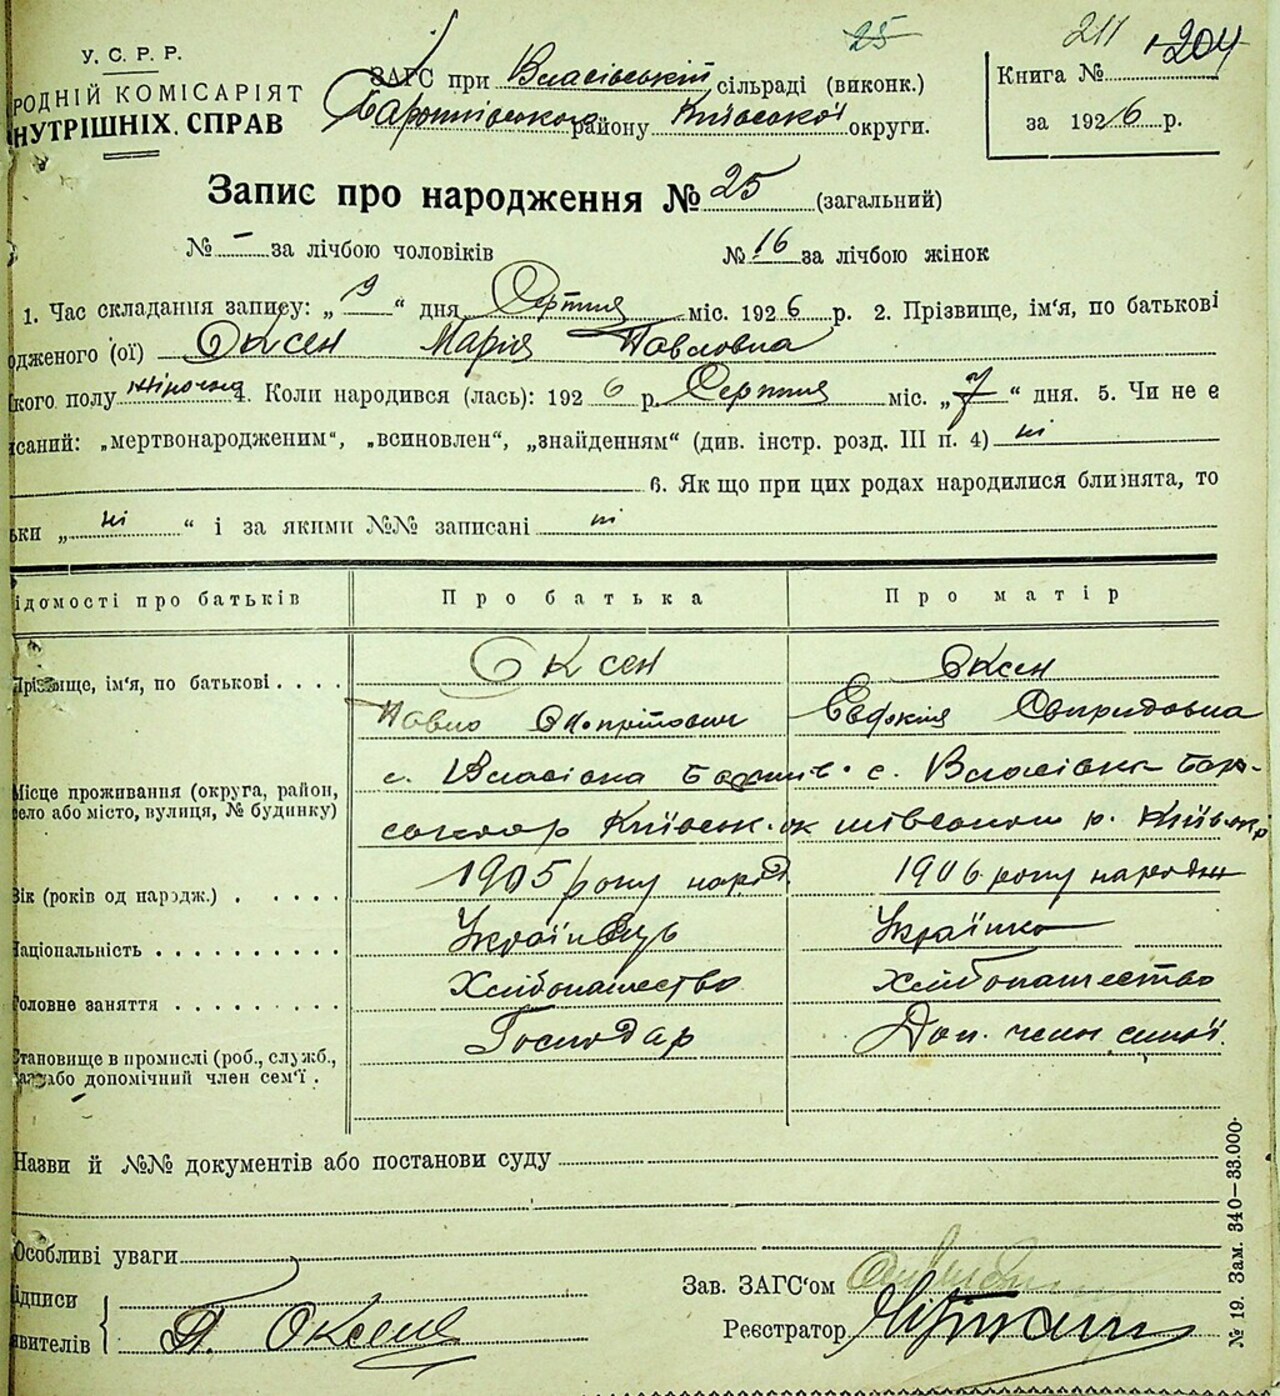 25 211 204
У. С. Р. Р.
РОДНІЙ КОМІСАРІЯТ
НУТРІШНІХ СПРАВ
ЗАГС при Власівській сільраді (виконк.)
району Київської округи.
Книга №
за 1926 р.
Запис про народження № 25 (загальний)
№ – за лічбою чоловіків № 16 за лічбою жінок
1. Час складання запису: „ 9 “ дня Серпня міс. 1926 р. 2. Прізвище, ім'я, по батькові
одженого (ої) Оксен Марія Павловна
кого полу жіночого 4. Коли народився (лась): 1926 р. Серпня міс. „ 7 “ дня. 5. Чи не є
исаний: „мертвонародженим“, „всиновлен“, „знайденням“ (див. інстр. розд. III п. 4) ні
6. Як що при цих родах народилися близнята, то
ьки „ ні “ і за якими №№ записані ні
ідомості про батьків Про батька Про матір
Прізвище, ім'я, по батькові . . . . Оксен Оксен
Павло Евдокія Свиридовна
Місце проживання (округа, район, с. Власівка с. Власівка
село або місто, вулиця, № будинку) Київськ. ок р.
Вік (років од нарᴏдж.) . . . . . 1905 року народ. 1906 року народж
Національність . . . . . . . . . . Українець Українка
Головне заняття . . . . . . . . . Хлібопашество Хлібопашество
Становище в промислі (роб., служб., Господар Доп. член сім'ї.
або допомічний член сем'ї .
Назви й №№ документів або постанови суду
Особливі уваги
ідписи Зав. ЗАГС'ом
явителів П. Оксень Реєстратор
№ 19. Зам. 340—33.000.